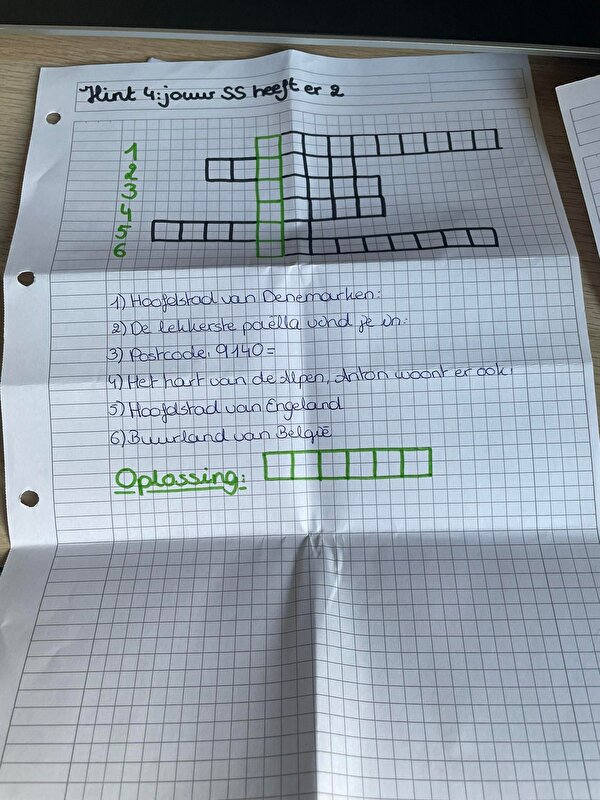 Hint 4: jouw SS heeft er 2
1
2
3
4
5
6
1) Hoofdstad van Denemarken:
2) De lekkerste paëlla vond je in:
3) Postcode: 9140 =
4) Het hart van de Alpen, Anton woont er ook:
5) Hoofdstad van Engeland
6) Buurland van België
Oplossing: